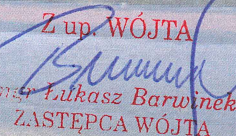 Z up. WÓJTA
mgr Łukasz Barwinek
ZASTĘPCA WÓJTA